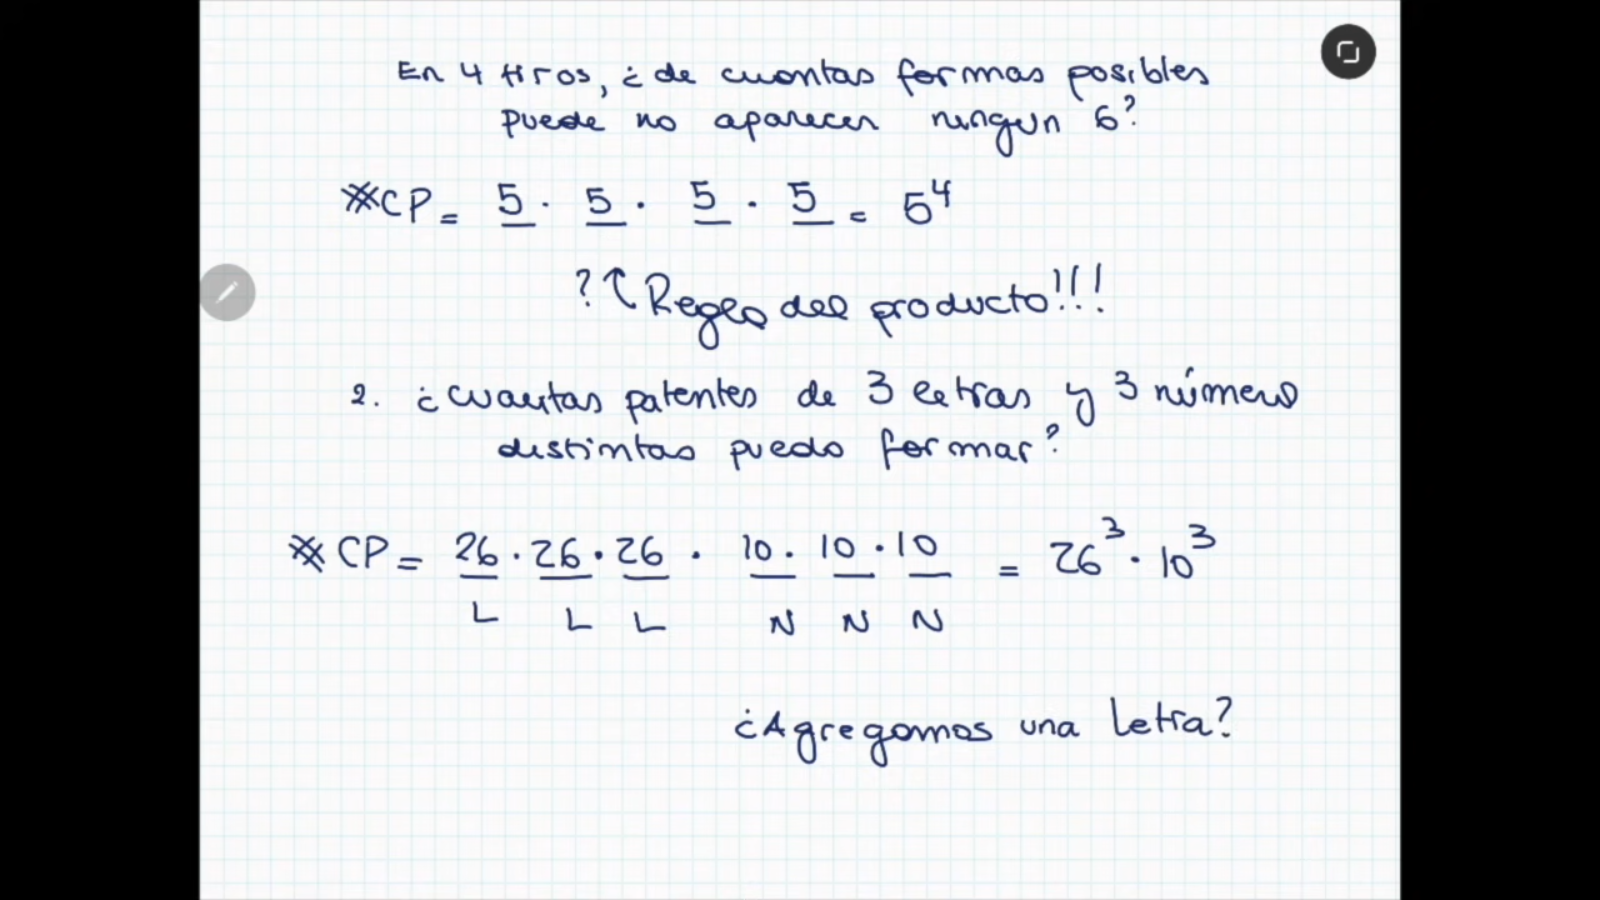 En 4 tiros, ¿de cuantas formas posibles
puede no aparecer ningun 6?
#CP = 5 · 5 · 5 · 5 = 5⁴
?↑ Regla del producto!!!
2. ¿cuantas patentes de 3 letras y 3 número
distintas puedo formar?
#CP = 26 · 26 · 26 · 10 · 10 · 10 = 26³ · 10³
L L L N N N
¿Agregamos una letra?